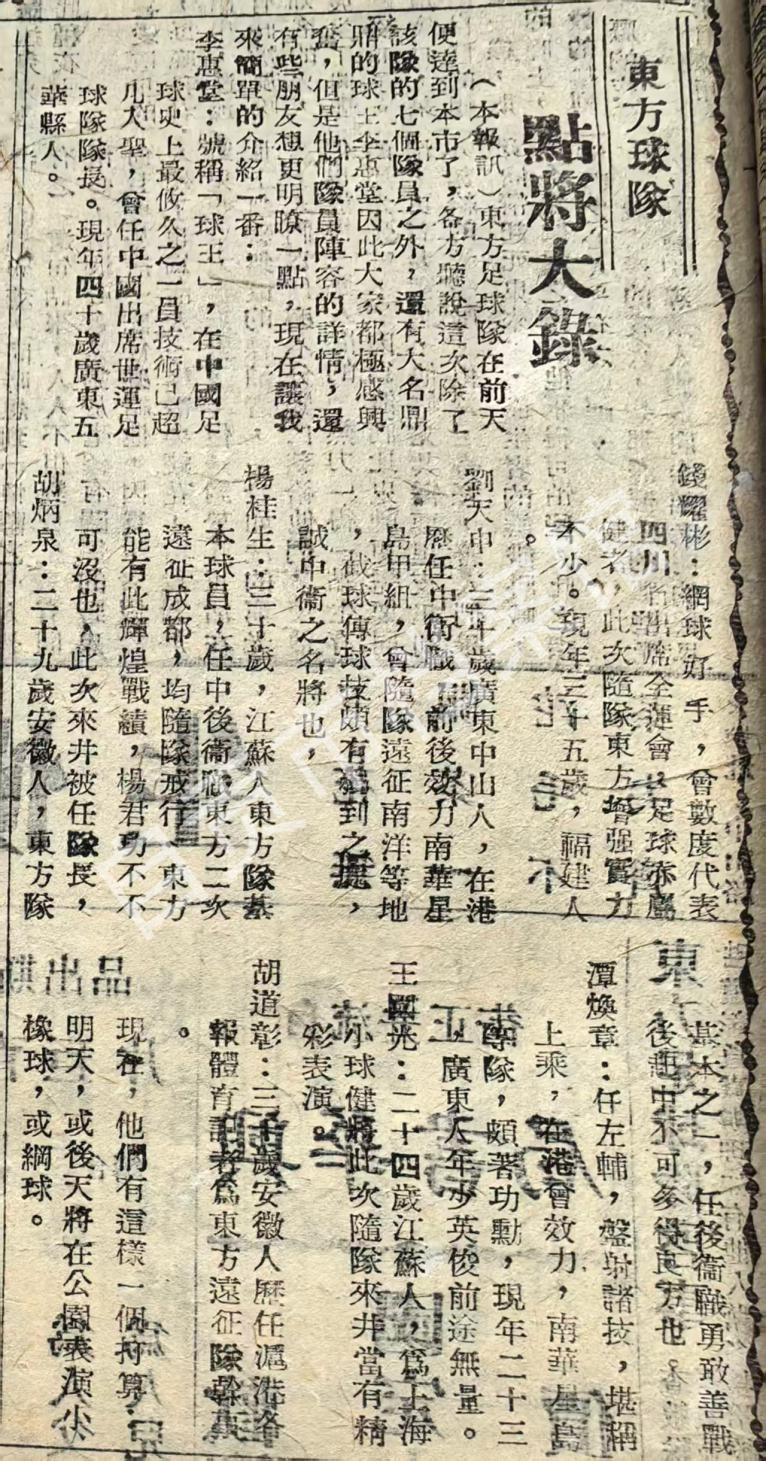 東方球隊
點將大錄
(本報訊)東方足球隊在前天
便達到本市了，各方聽說這次除了
該隊的七個隊員之外，還有大名鼎
鼎的球王李惠堂因此大家都極感興
奮，但是他們隊員陣容的詳情，還
有些朋友想更明瞭一點，現在讓我
來簡單的介紹一番：
李惠堂：號稱「球王」，在中國足
球史上最攸久之一員技術已超
凡入聖，曾任中國出席世運足
球隊隊長。現年四十歲廣東五
華縣人。
錢耀彬：網球好手，曾數度代表
四川省出席全運會，足球亦屬
健者，此次隨隊東方增强實力
不少。現年三十五歲，福建人
。
劉天中：三十歲廣東中山人，在港
歷任中衛職，前後効力南華星
島甲組，會隨隊遠征南洋等地
，截球傳球技頗有獨到之處，
誠中衛之名將也，
楊桂生：三十歲，江蘇人東方隊基
本球員，任中後衛職東方二次
遠征成都，均隨隊戒行，東方
能有此輝煌戰績，楊君功不不
可沒也，此次來井被任隊長，
胡炳泉：二十九歲安徽人，東方隊
基本之一，任後衞職勇敢善戰
後起中不可多得良方也
潭煥章：任左輔，盤射諸技，堪稱
上乘，在港會效力，南華星島
團隊，頗著功勳，現年二十三
，廣東人年少英俊前途無量。
王國光：二十四歲江蘇人，爲上海
小球健將此次隨隊來井當有精
彩表演。
胡道彰：三十歲安徽人歷任滬港各
報體育記者爲東方遠征隊幹事
。
現在，他們有這樣一個打算：
明天，或後天將在公園表演小
橡球，或網球。